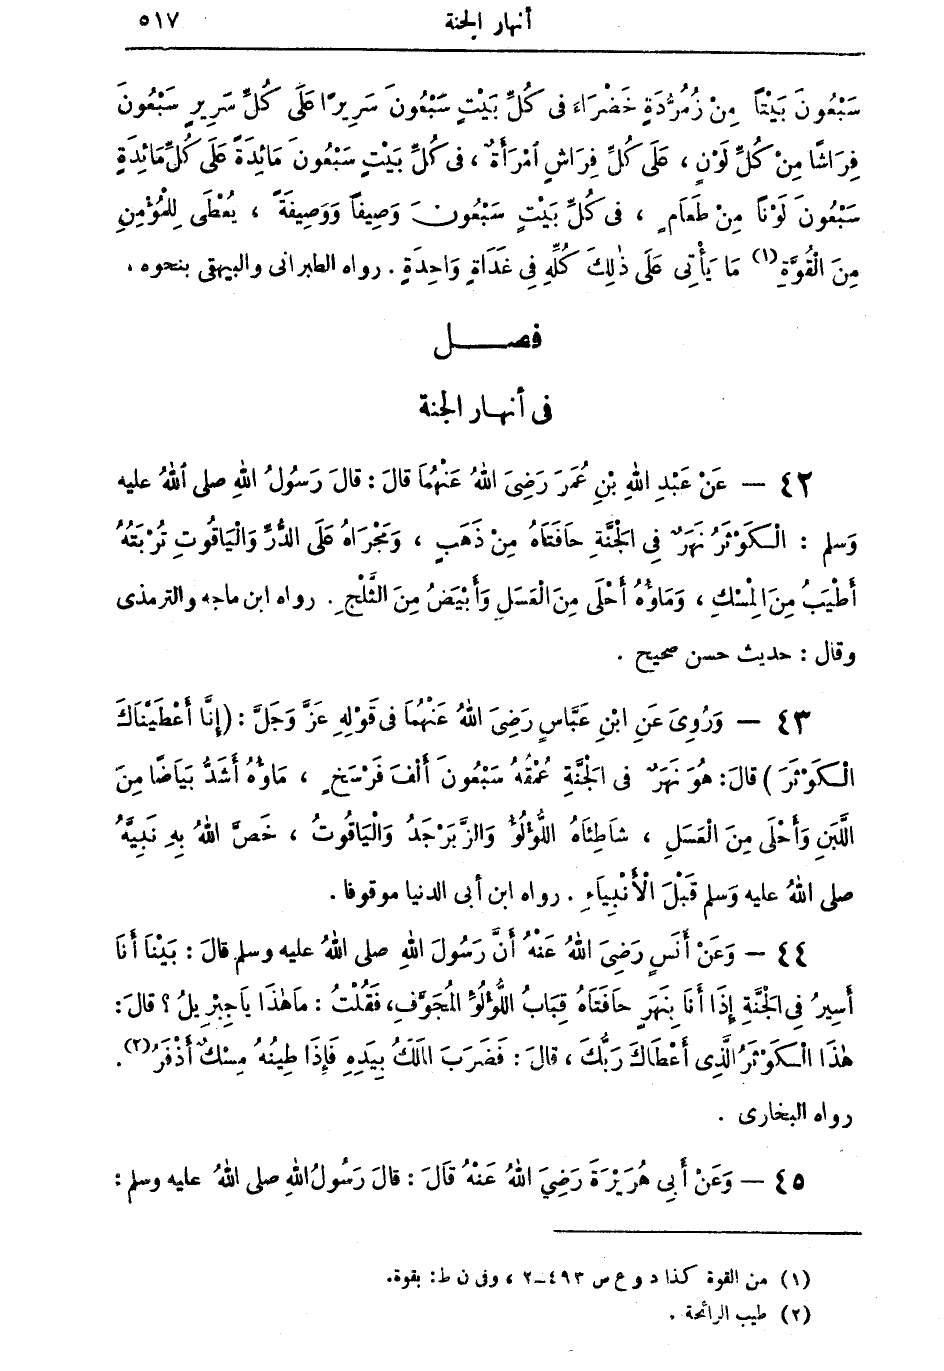 أنهار الجنة ٥١٧
سَبْعُونَ بَيْتاً مِنْ زُمُرُّدَةٍ خَضْرَاءَ فى كُلِّ بَيْتٍ سَبْعُونَ سَرِيرًا عَلَى كُلِّ سَرِيرٍ سَبْعُونَ
فِرَاشًا مِنْ كُلِّ لَوْنٍ ، عَلَى كُلِّ فِرَاشٍ ٱمْرَأَةٌ ، فى كُلِّ بَيْتٍ سَبْعُونَ مَائِدَةً عَلَى كُلِّ مَائِدَةٍ
سَبْعُونَ لَوْناً مِنْ طَعَامٍ ، فى كُلِّ بَيْتٍ سَبْعُونَ وَصِيفاً وَوَصِيفَةً ، يُعْطَى لِلْمُؤْمِنِ
مِنَ الْقُوَّةِ(١) مَا يَأْتِى عَلَى ذٰلِكَ كُلِّهِ فِى غَدَاةٍ وَاحِدَةٍ . رواه الطبرانى والبيهقى بنحوه .
فصـــل
فى أنهـار الجنة
٤٢ — عَنْ عَبْدِ اللهِ بْنِ عُمَرَ رَضِىَ اللهُ عَنْهُمَا قالَ : قالَ رَسُولُ اللهِ صلى ٱللهُ عليه
وَسلم : الْكَوْثَرُ نَهَرٌ فِى الجَنَّةِ حافَتَاهُ مِنْ ذَهَبٍ ، وَمَجْرَاهُ عَلَى الدُّرِّ وَالْيَاقُوتِ تُرْبَتُهُ
أَطْيَبُ مِنَ الْمِسْكِ ، وَمَاؤُهُ أَحْلَى مِنَ الْعَسَلِ وَأَبْيَضُ مِنَ الثَّلْجِ . رواه ابن ماجه والترمذى
وقال : حديث حسن صحيح .
٤٣ — وَرُوِىَ عَنِ ابْنِ عَبَّاسٍ رَضِىَ اللهُ عَنْهُمَا فى قَوْلِهِ عَزَّ وَجَلَّ : (إِنَّا أَعْطَيْنَاكَ
الْكَوْثَرَ) قالَ: هُوَ نَهَرٌ فى الجَنَّةِ عُمْقُهُ سَبْعُونَ أَلْفَ فَرْسَخٍ ، مَاؤُهُ أَشَدُّ بَيَاضًا مِنَ
اللَّبَنِ وَأَحْلَى مِنَ الْعَسَلِ ، شاطِئَاهُ اللُّؤْلُؤُ وَالزَّبَرْجَدُ وَالْيَاقُوتُ ، خَصَّ اللهُ بِهِ نَبِيَّهُ
صلى اللهُ عليه وَسلم قَبْلَ الْأَنْبِيَاءِ . رواه ابن أبى الدنيا موقوفا .
٤٤ — وَعَنْ أَنَسٍ رَضِىَ اللهُ عَنْهُ أَنَّ رَسُولَ اللهِ صلى اللهُ عليه وسلم قالَ : بَيْنَا أَنَا
أَسِيرُ فِى الجَنَّةِ إِذَا أَنَا بِنَهَرٍ حافَتَاهُ قِبَابُ اللُّؤْلُؤِ المُجَوَّفِ، فَقُلْتُ : ماهٰذَا يَاجِبْرِيلُ ؟ قالَ:
هٰذَا الْكَوْثَرُ الَّذِى أَعْطَاكَ رَبُّكَ ، قالَ : فَضَرَبَ المَلَكُ بِيَدِهِ فَإِذَا طِينُهُ مِسْكٌ أَذْفَرُ(٢).
رواه البخارى .
٤٥ — وَعَنْ أَبِى هُرَيْرَةَ رَضِيَ اللهُ عَنْهُ قَالَ : قالَ رَسُولُ اللهِ صلى اللهُ عليه وسلم :
(١) من القوة كذا د و ع س ٤٩٣–٢ ، وفى ن ط : بقوة.
(٢) طيب الرائحة .